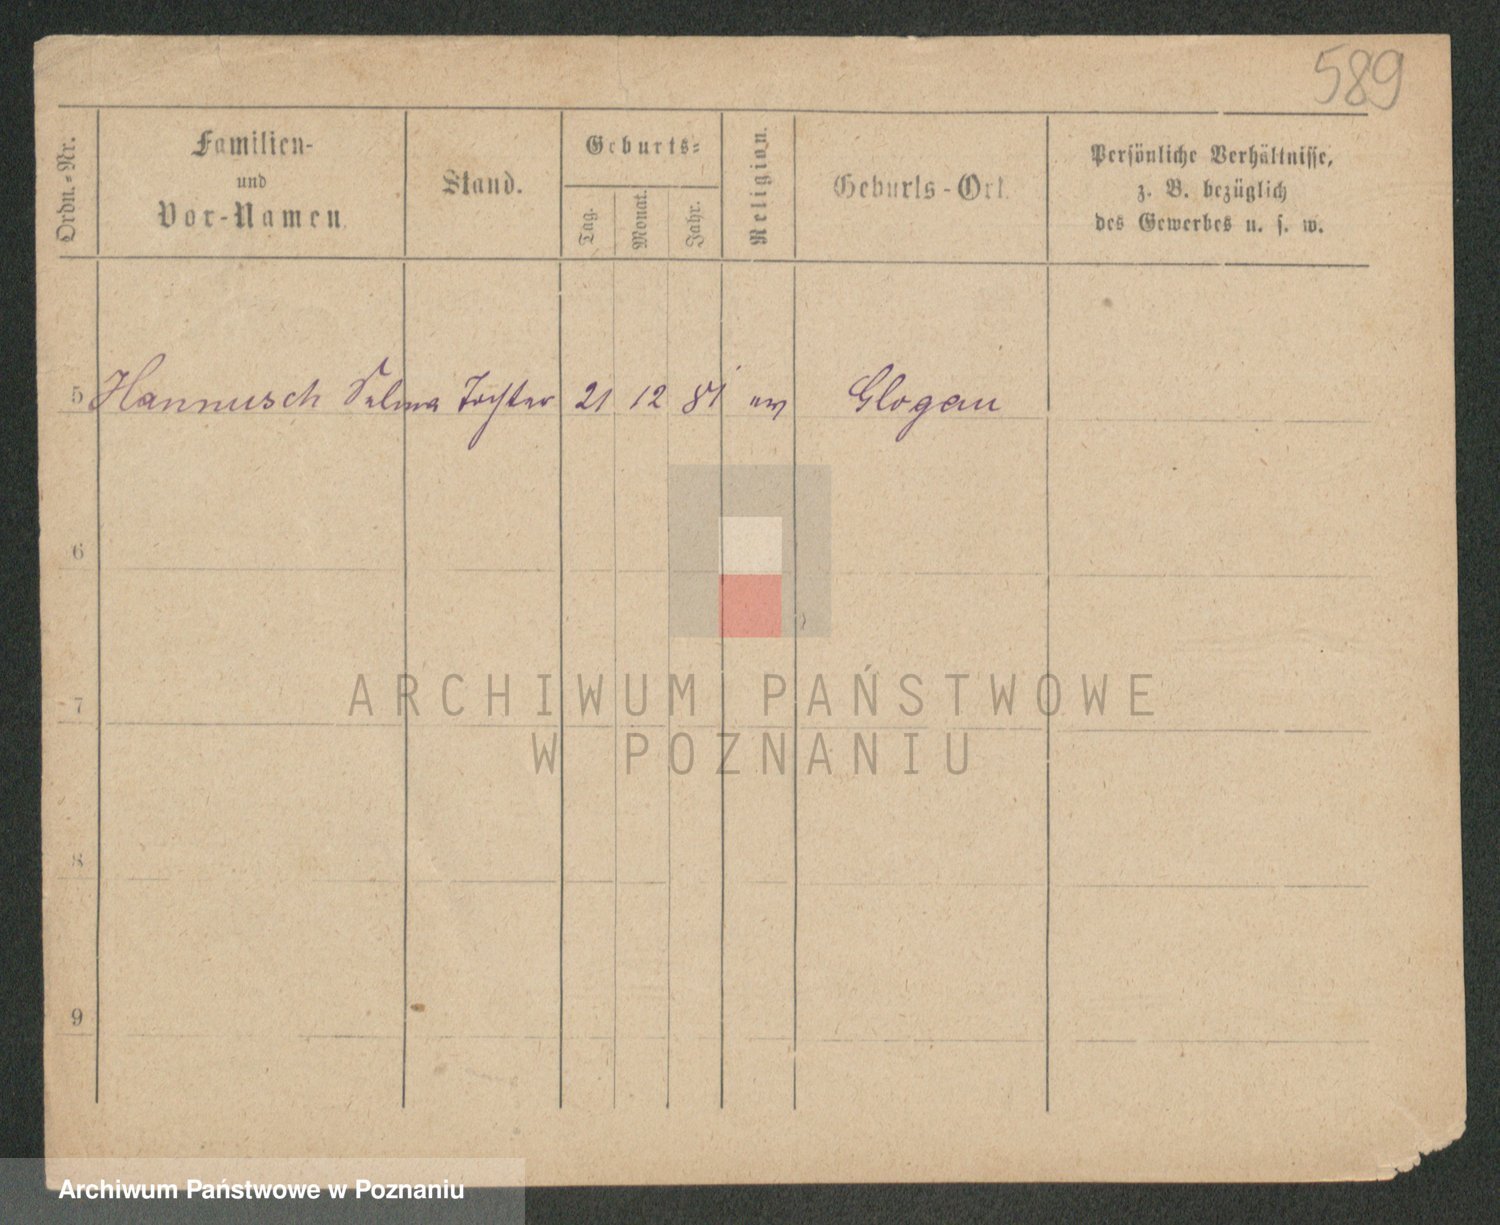 589
Ordn.-Nr.
Familien-
und
Vor-Namen.
Stand.
Geburts-
Tag.
Monat.
Jahr.
Religion.
Geburts-Ort.
Persönliche Verhältnisse,
z. B. bezüglich
des Gewerbes u. s. w.
5 Hannusch Selma Tochter 21 12 81 ev Glogau
6
7
8
9
ARCHIWUM PAŃSTWOWE
W POZNANIU
Archiwum Państwowe w Poznaniu